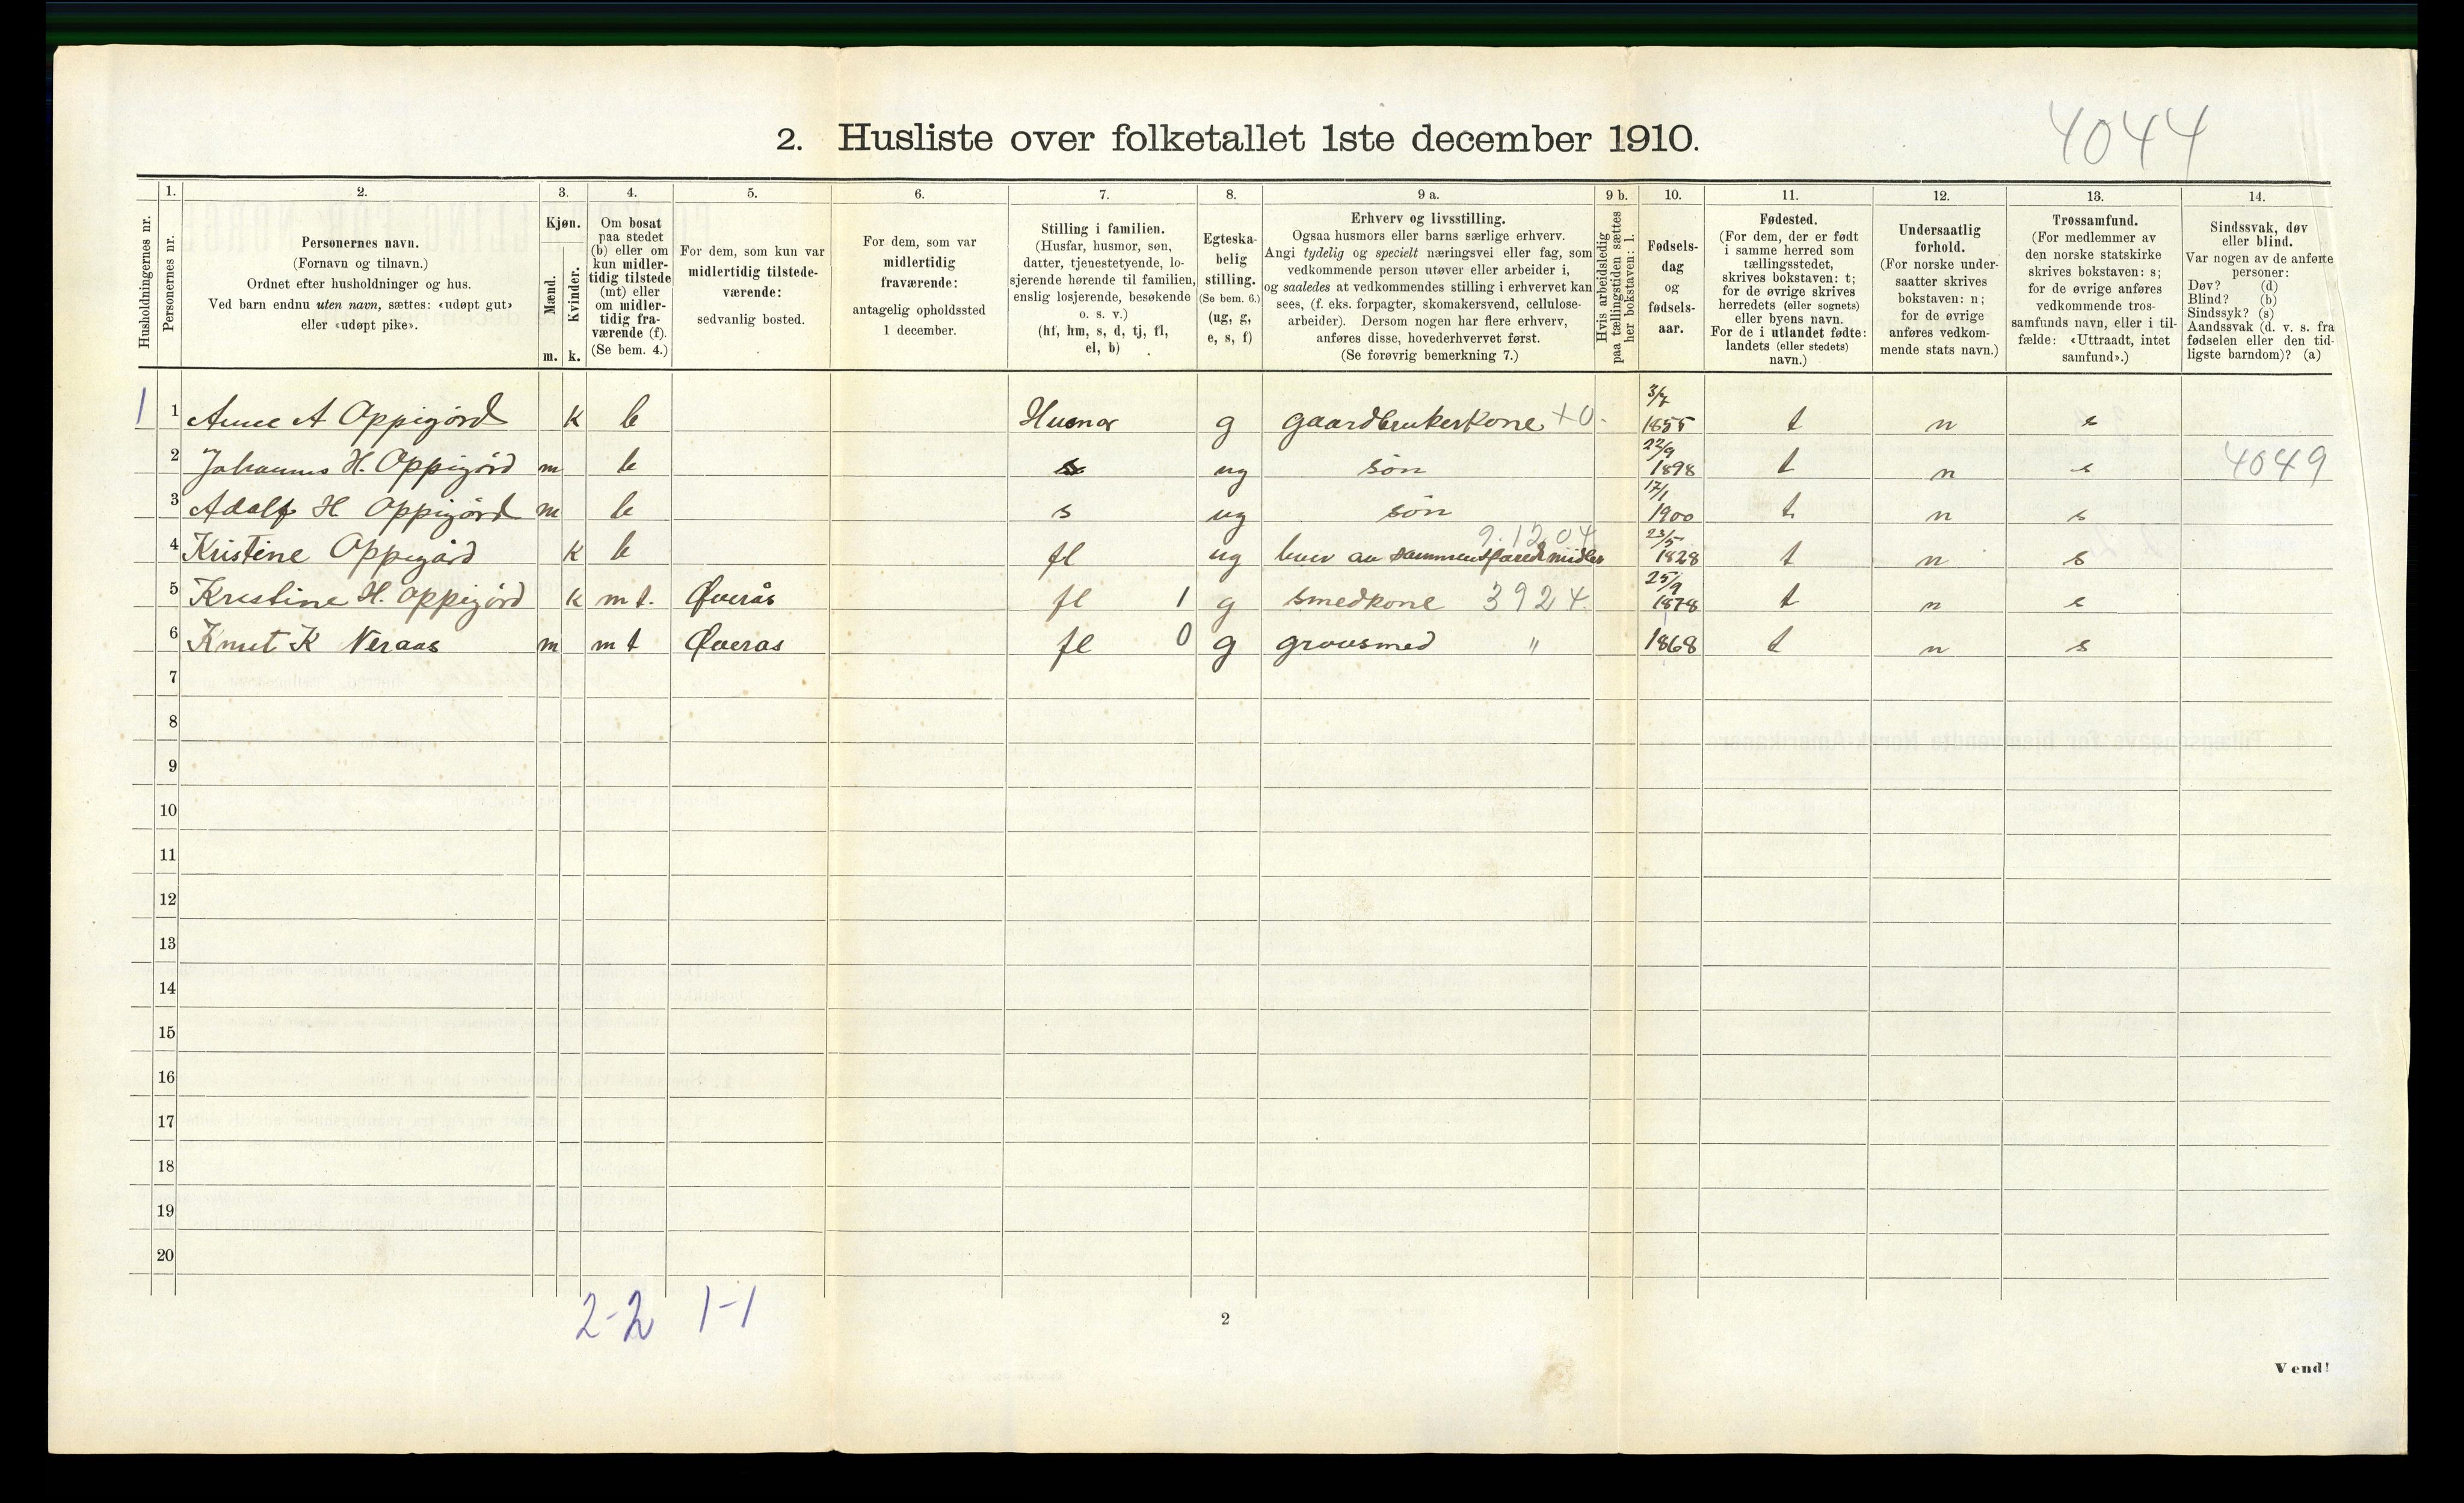 4044
2. Husliste over folketallet 1ste december 1910.
Husholdningernes nr.
1. Personernes nr.
2. Personernes navn.
(Fornavn og tilnavn.)
Ordnet efter husholdninger og hus.
Ved barn endnu uten navn, sættes: «udøpt gut»
eller «udøpt pike».
3. Kjøn.
Mænd. Kvinder.
m. k.
4. Om bosat
paa stedet
(b) eller om
kun midler-
tidig tilstede
(mt) eller
om midler-
tidig fra-
værende (f).
(Se bem. 4.)
5. For dem, som kun var
midlertidig tilstede-
værende:
sedvanlig bosted.
6. For dem, som var
midlertidig
fraværende:
antagelig opholdssted
1 december.
7. Stilling i familien.
(Husfar, husmor, søn,
datter, tjenestetyende, lo-
sjerende hørende til familien,
enslig losjerende, besøkende
o. s. v.)
(hf, hm, s, d, tj, fl,
el, b)
8. Egteska-
belig
stilling.
(Se bem. 6.)
(ug, g,
e, s, f)
9 a. Erhverv og livsstilling.
Ogsaa husmors eller barns særlige erhverv.
Angi tydelig og specielt næringsvei eller fag, som
vedkommende person utøver eller arbeider i,
og saaledes at vedkommendes stilling i erhvervet kan
sees, (f. eks. forpagter, skomakersvend, cellulose-
arbeider). Dersom nogen har flere erhverv,
anføres disse, hovederhvervet først.
(Se forøvrig bemerkning 7.)
9 b. Hvis arbeidsledig
paa tællingstiden sættes
her bokstaven: l.
10. Fødsels-
dag
og
fødsels-
aar.
11. Fødested.
(For dem, der er født
i samme herred som
tællingsstedet,
skrives bokstaven: t;
for de øvrige skrives
herredets (eller sognets)
eller byens navn.
For de i utlandet fødte:
landets (eller stedets)
navn.)
12. Undersaatlig
forhold.
(For norske under-
saatter skrives
bokstaven: n;
for de øvrige
anføres vedkom-
mende stats navn.)
13. Trossamfund.
(For medlemmer av
den norske statskirke
skrives bokstaven: s;
for de øvrige anføres
vedkommende tros-
samfunds navn, eller i til-
fælde: «Uttraadt, intet
samfund».)
14. Sindssvak, døv
eller blind.
Var nogen av de anførte
personer:
Døv? (d)
Blind? (b)
Sindssyk? (s)
Aandssvak (d. v. s. fra
fødselen eller den tid-
ligste barndom)? (a)
1 1 Anne A Oppigård k b Husmor g gaardbrukerkone +0. 3/7 1855 t n s
2 Johannes H. Oppigård m b s ug søn 22/9 1898 t n s 4049
3 Adolf H Oppigård m b s ug søn 17/1 1900 t. n s
4 Kristine Oppigård k b fl ug lever av sammensparedemidler 9.12.04 23/5 1828 t n s
5 Kristine H. Oppigård k mt. Øverås fl 1 g smedkone 3924 25/9 1878 t n s
6 Knut K Neraas m mt Øveras fl 0 g grovsmed " 1868 t n s
7
8
9
10
11
12
13
14
15
16
17
18
19
20
2-2 1-1
2
Vend!